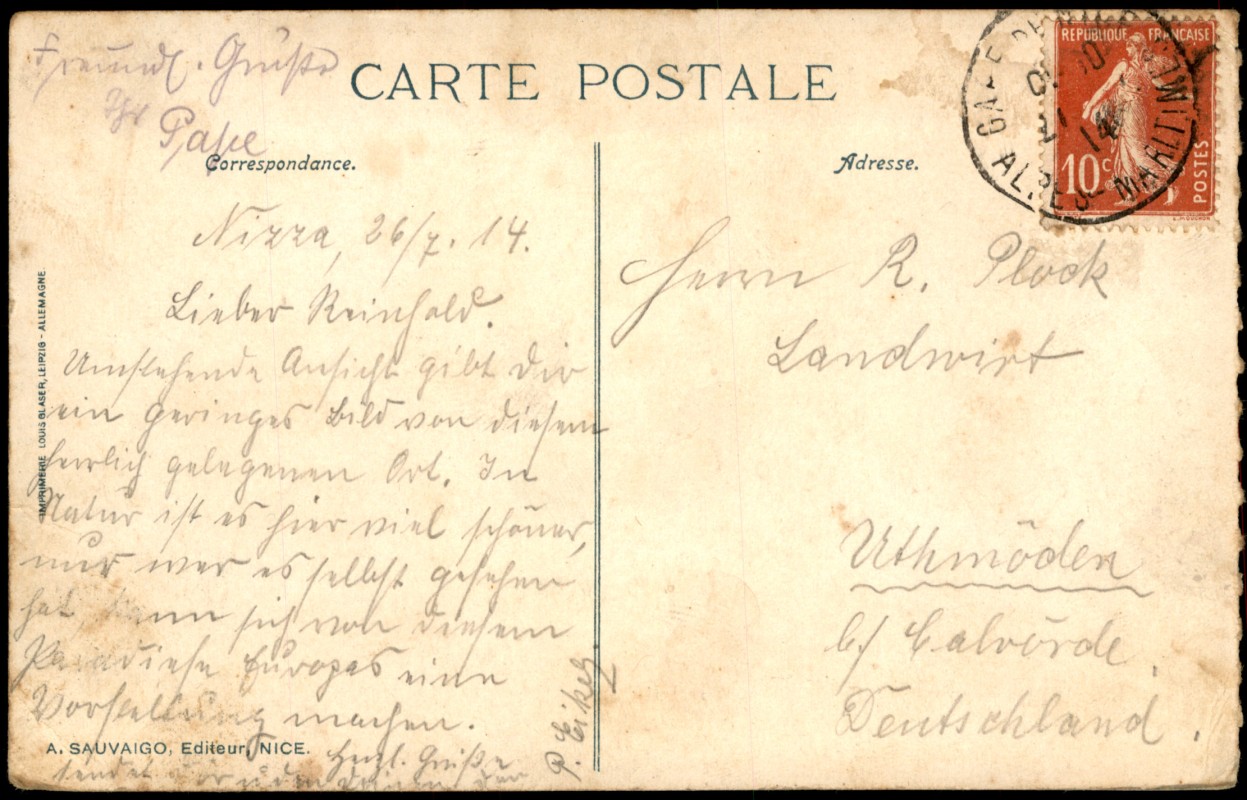 Freundl. Grüße
Ihr
Pape
CARTE POSTALE
Correspondance.
Adresse.
RÉPUBLIQUE FRANÇAISE
10c
POSTES
GARE DE
21 14
ALPES MARITIMES
Nizza, 26/7. 14.
Lieber Reinhold.
Umstehende Ansicht gibt Dir
ein geringes Bild von diesem
herrlich gelegenen Ort. In
Natur ist es hier viel schöner,
nur wer es selbst gesehen
hat, kann sich von diesem
Paradiese Europas eine
Vorstellung machen.
Herzl. Grüße
sendet Dir u. den Deinen
P. Eikel
Herrn R. Plock
Landwirt
Uthmöden
b/ Calvörde.
Deutschland.
IMPRIMERIE LOUIS GLASER, LEIPZIG - ALLEMAGNE
A. SAUVAIGO, Editeur, NICE.